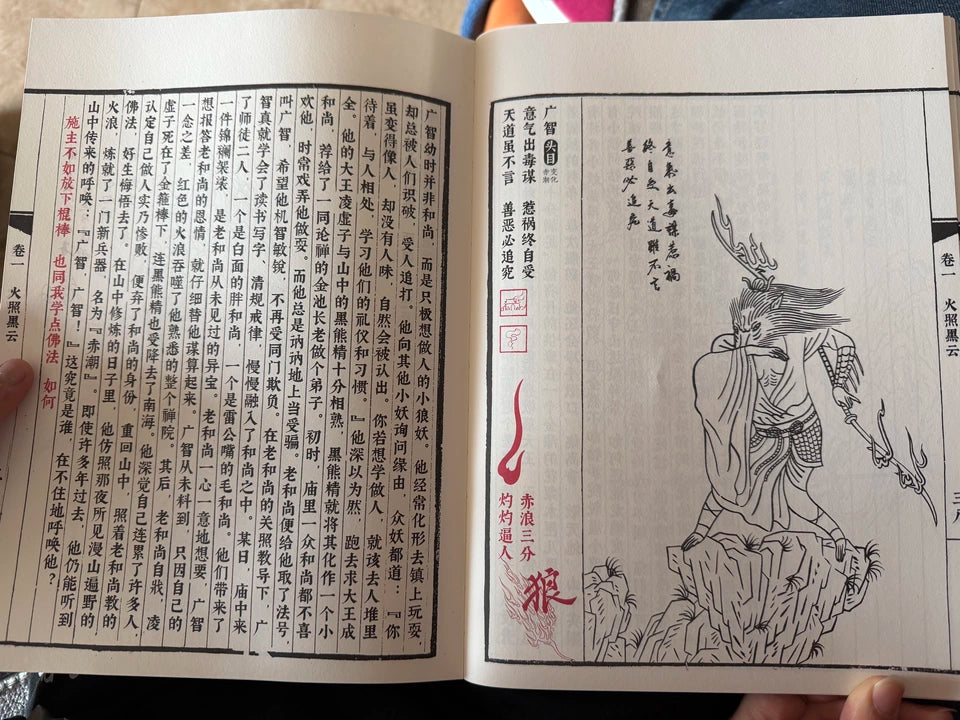 卷一 火照黑云
意气出毒谋惹祸
终自受天道虽不言
善恶必追究
广智 头目 变化 赤潮
意气出毒谋 惹祸终自受
天道虽不言 善恶必追究
赤浪三分
灼灼逼人
狼
广智幼时并非和尚，而是只极想做人的小狼妖。他经常化形去镇上玩耍，
却总被人们识破，受人追打。他向其他小妖询问缘由，众妖都道：『你
虽变得像人，却没有人味，自然会被认出。你若想学做人，就该去人堆里
待着，与人相处，学习他们的礼仪和习惯。』他深以为然，跑去求大王成
全。他的大王凌虚子与山中的黑熊精十分相熟，黑熊精就将其化作一个小
和尚，荐给了一同论禅的金池长老做个弟子。初时，庙里一众和尚都不喜
欢他，时常戏弄他做耍。而他总是讷讷地上当受骗。老和尚便给他取了法号，
叫广智，希望他机智敏锐，不再受同门欺负。在老和尚的关照教导下，广
智真就学会了读书写字，清规戒律，慢慢融入了和尚之中。某日，庙中来
了师徒二人，一个是白面的胖和尚，一个是雷公嘴的毛和尚。他们带来了
一件锦襕袈裟，是老和尚从未见过的异宝。老和尚一心一意地想要，广智
想报答老和尚的恩情，就仔细替他谋算起来。广智从未料到，只因自己的
一念之差，红色的火浪吞噬了他熟悉的整个禅院。其后，老和尚自戕，凌
虚子死在了金箍棒下，连黑熊精也受降去了南海。他深觉自己连累了许多人，
认定自己做人实乃惨败，便弃了和尚的身份，重回山中，照着老和尚教的
佛法，好生悔悟去了。在山中修炼的日子里，他仿照那夜所见漫山遍野的
火浪，炼就了一门新兵器，名为『赤潮』。即使许多年过去，他仍能听到
山中传来的呼唤：『广智，广智！』这究竟是谁，在不住地呼唤他？
施主不如放下棍棒 也同我学点佛法 如何
卷一 火照黑云